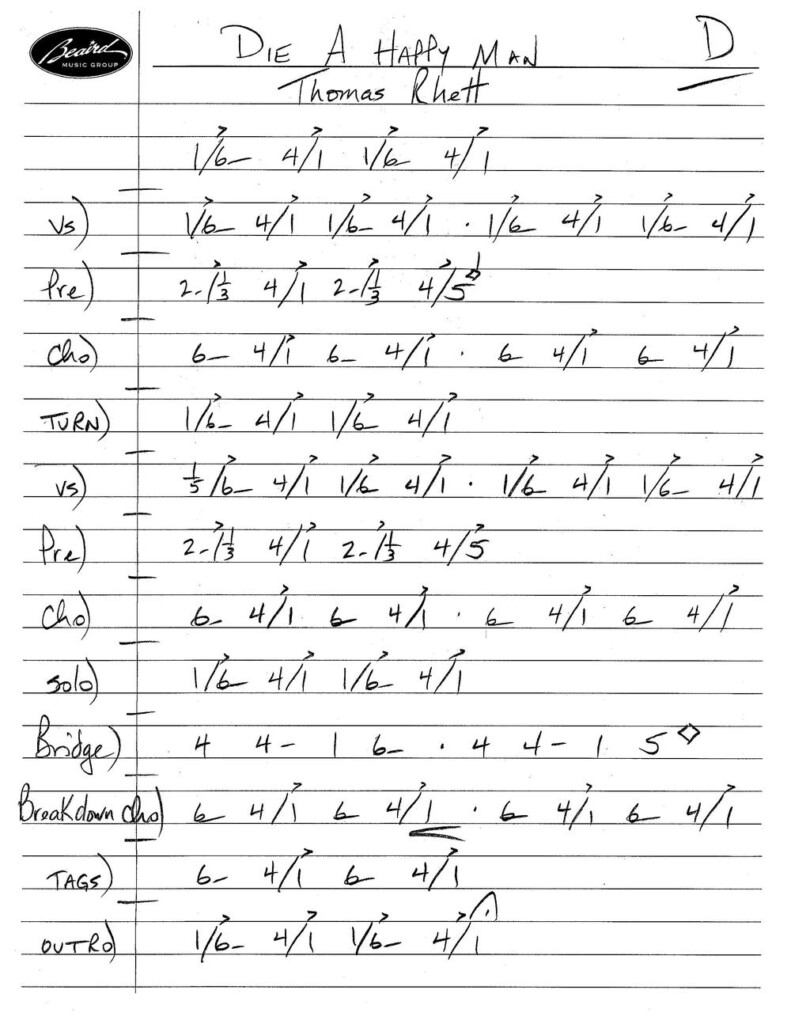 Beaird
MUSIC GROUP
DIE A HAPPY MAN D
Thomas Rhett
1/6- 4/1 1/6- 4/1
Vs) 1/6- 4/1 1/6- 4/1 · 1/6- 4/1 1/6- 4/1
Pre) 2-/1/3 4/1 2-/1/3 4/5 1
Cho) 6- 4/1 6- 4/1 · 6- 4/1 6- 4/1
TURN) 1/6- 4/1 1/6- 4/1
Vs) 1/5/6- 4/1 1/6- 4/1 · 1/6- 4/1 1/6- 4/1
Pre) 2-/1/3 4/1 2-/1/3 4/5
Cho) 6- 4/1 6- 4/1 · 6- 4/1 6- 4/1
Solo) 1/6- 4/1 1/6- 4/1
Bridge) 4 4- 1 6- · 4 4- 1 5◇
Breakdown Cho) 6- 4/1 6- 4/1 · 6- 4/1 6- 4/1
TAGS) 6- 4/1 6- 4/1
OUTRO) 1/6- 4/1 1/6- 4/1